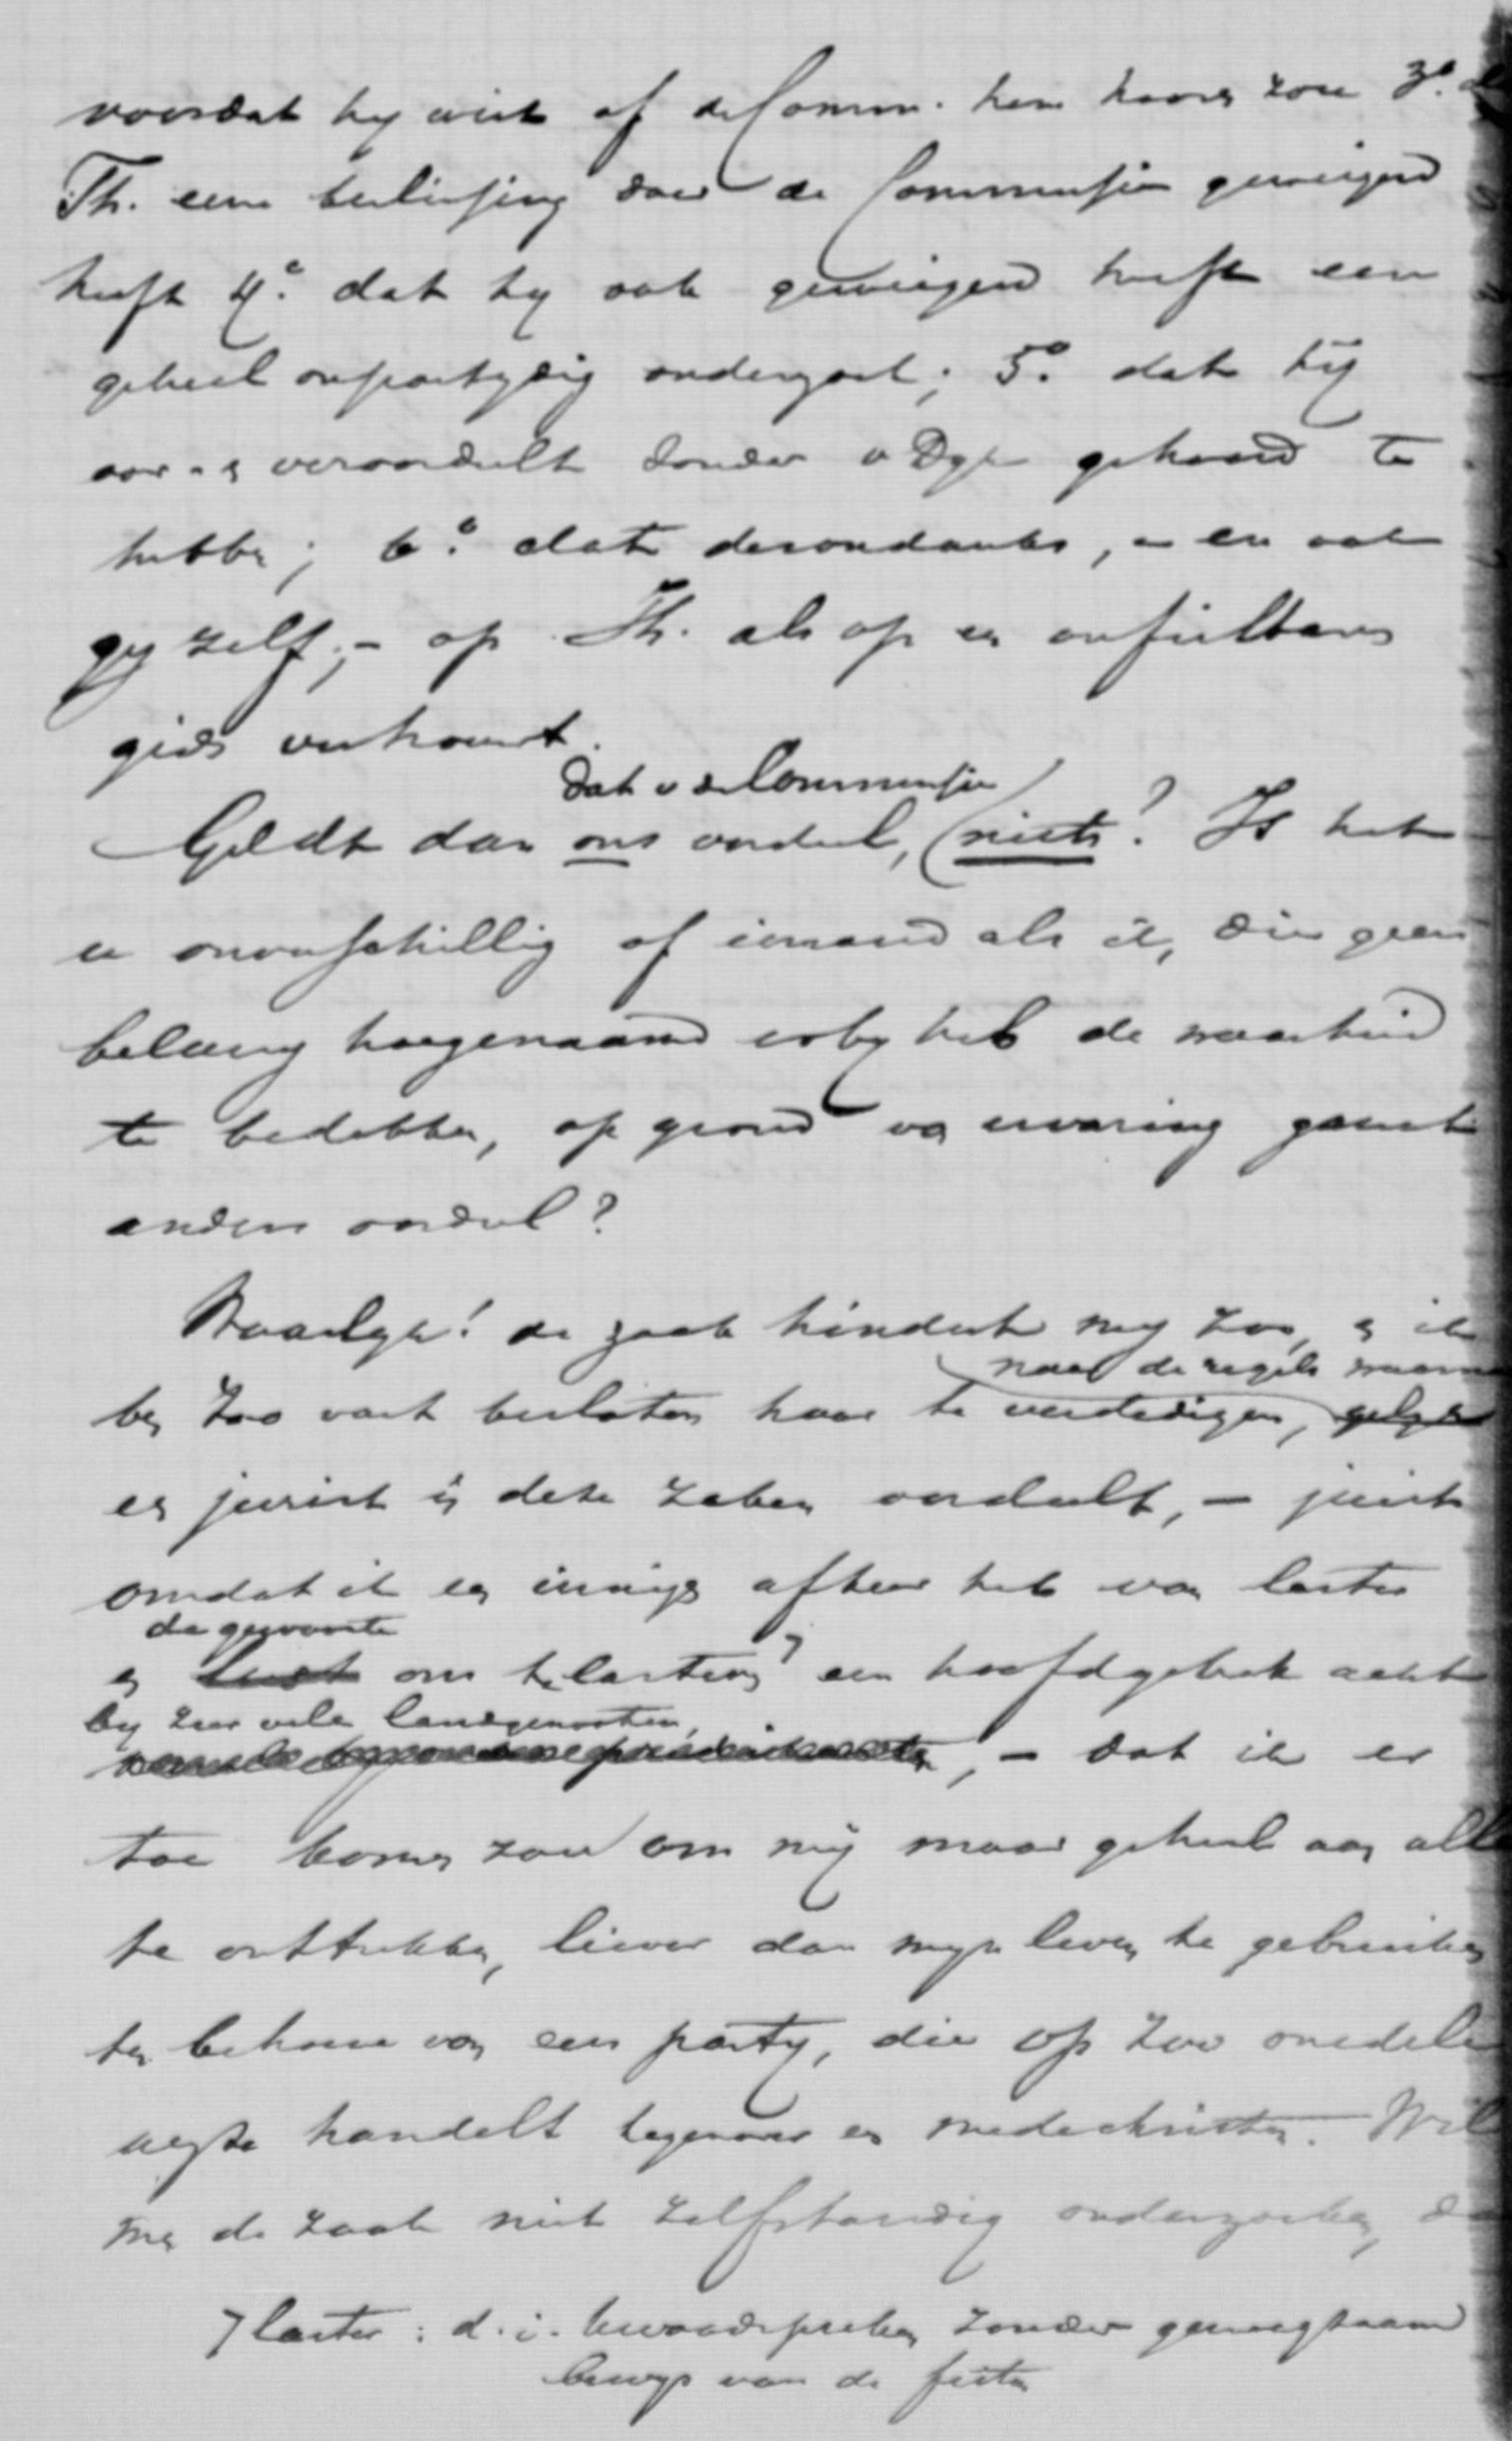 voordat hy wist of de Comm. hem hooren zou 3º. d
Th. eene beslissing door de Commissie geweigerd
heeft 4º. dat hy ook geweigerd heeft een
geheel onpartydig onderzoek; 5º. dat hy
veroordeelt zonder v Dyk gehoord te
hebben; 6º. dat desondanks, – en ook
gy zelf, – op Th. als op een onfeilbaren
gids vertrouwt.
dat v de Commissie
Geldt dan ons oordeel, niets? Is het
u onverschillig of iemand als ik, die geen
belang hoegenaamd erby heb de waarheid
te bedekken, op grond van ervaring gansch
anders oordeel?
Waarlyk! de zaak hindert my zoo, en ik
naar de regels waarnaar
ben zoo vast besloten haar te verdedigen,
een jurist in deze zaken oordeelt, – juist
omdat ik een innigen afkeer heb van laster
de gewoonte
en lust om te lasteren een hoofdgebrek acht
by zeer vele landgenooten,
, – dat ik er
toe komen zou om my maar geheel aan alles
te onttrekken, liever dan myn leven te gebruiken
ten behoeve van een party, die op zoo onedele
wyze handelt tegenover een medechristen. Wil
men de zaak niet zelfstandig onderzoeken, da
laster: d.i. kwaadspreken zonder genoegzaam
bewys van de feiten